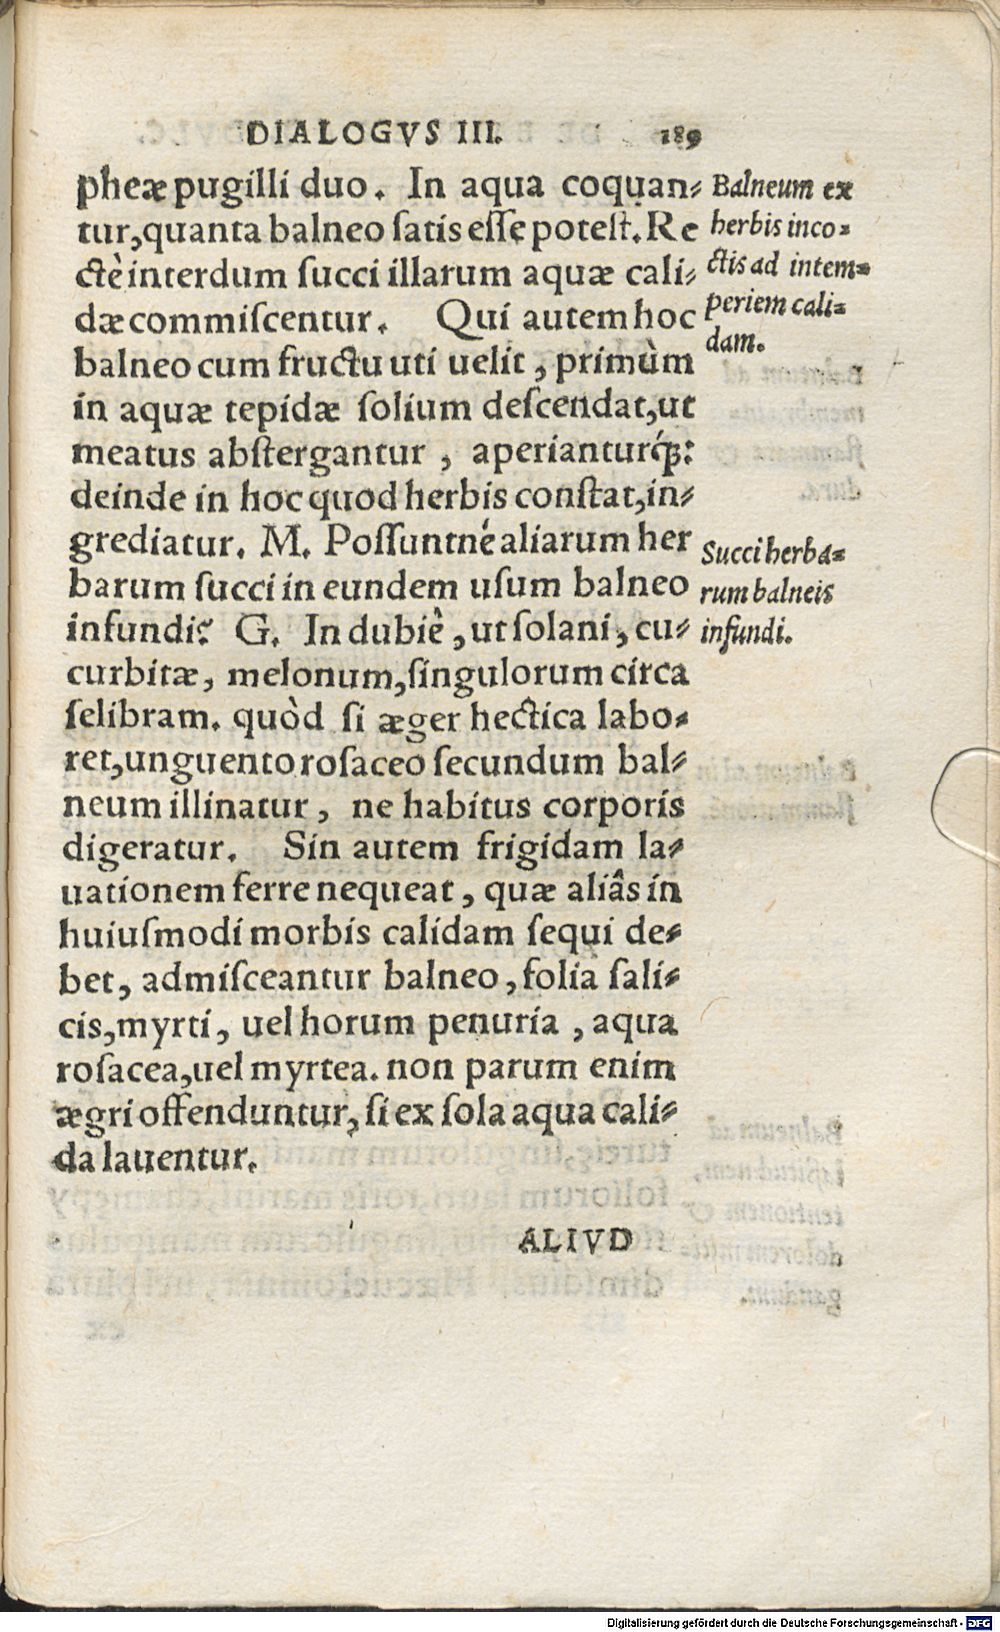 DIALOGVS III. 189
pheæ pugilli duo. In aqua coquan⸗
tur, quanta balneo satis esse potest. Re
ctè interdum succi illarum aquæ cali⸗
dæ commiscentur. Qui autem hoc
balneo cum fructu uti uelit, primùm
in aquæ tepidæ solium descendat, ut
meatus abstergantur, aperianturq́;:
deinde in hoc quod herbis constat, in⸗
grediatur. M. Possuntné aliarum her
barum succi in eundem usum balneo
infundi? G. Indubiè, ut solani, cu⸗
curbitæ, melonum, singulorum circa
selibram. quòd si æger hectica labo⸗
ret, unguento rosaceo secundum bal⸗
neum illinatur, ne habitus corporis
digeratur. Sin autem frigidam la⸗
uationem ferre nequeat, quæ aliâs in
huiusmodi morbis calidam sequi de⸗
bet, admisceantur balneo, folia sali⸗
cis, myrti, uel horum penuria, aqua
rosacea, uel myrtea. non parum enim
ægri offenduntur, si ex sola aqua cali⸗
da lauentur.
ALIVD
Balneum ex
herbis inco⸗
ctis ad intem⸗
periem cali⸗
dam.
Succi herba⸗
rum balneis
infundi.
Digitalisierung gefördert durch die Deutsche Forschungsgemeinschaft - DFG